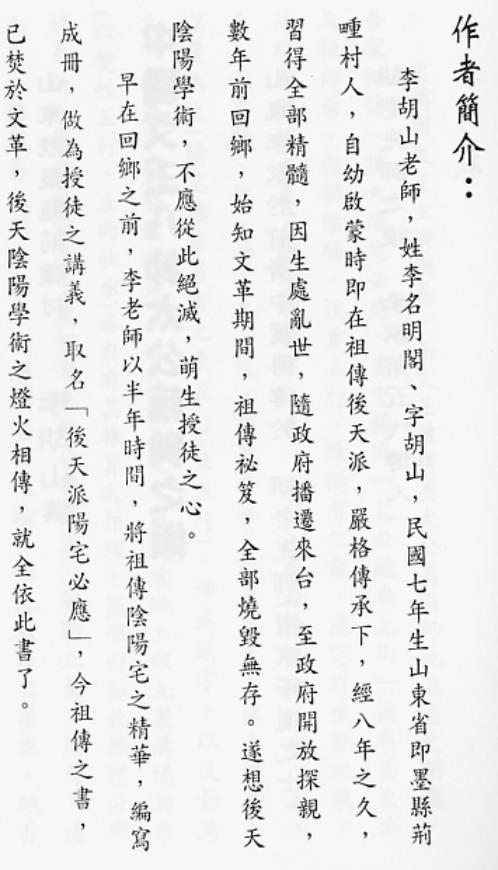 作者簡介：
李胡山老師，姓李名明閣、字胡山，民國七年生山東省即墨縣荊
畽村人，自幼啟蒙時即在祖傳後天派，嚴格傳承下，經八年之久，
習得全部精髓，因生處亂世，隨政府播遷來台，至政府開放探親，
數年前回鄉，始知文革期間，祖傳祕笈，全部燒毀無存。遂想後天
陰陽學術，不應從此絕滅，萌生授徒之心。
早在回鄉之前，李老師以半年時間，將祖傳陰陽宅之精華，編寫
成冊，做為授徒之講義，取名「後天派陽宅必應」，今祖傳之書，
已焚於文革，後天陰陽學術之燈火相傳，就全依此書了。